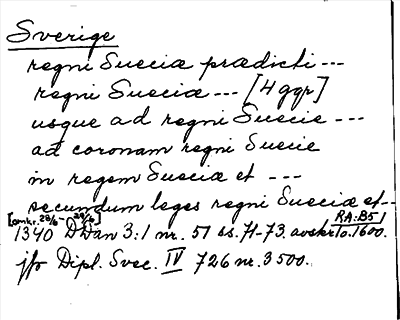 Sverige
regni Sueciæ prædicti ---
regni Sueciæ --- [4 ggr]
usque ad regni Suecie ---
ad coronam regni Suecie
in regem Sueciæ et ---
secundum leges regni Sueciæ et --
[omkr. 28/6 - 29/6] RA:B5
1340 DDan 3:1 nr. 51 ss. 71-73. avskr. o. 1600.
jfr Dipl. Svec. IV 726 nr. 3500.